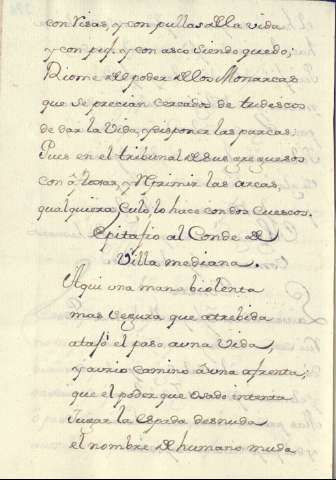 con risas, y con pullas della vida
y con puf. y con asco siendo quedo;
Riome del poder dellos Monarcas
que se precian cercados de tudescos
de dar la Vida, y disponer las parcas.
Pues en el tribunal de sus gregüescos
con aflojar, y reprimir las arcas,
qualquiera Culo, lo hace con dos Cuescos.
Epitafio al Conde de
Villa mediana.
Aqui una mano biolenta
mas segura que atrebida
atajó el paso auna Vida,
y aurio camino á una afrenta;
que el poder que osado intenta
Jugar la Espada desnuda
el nombre de humano muda